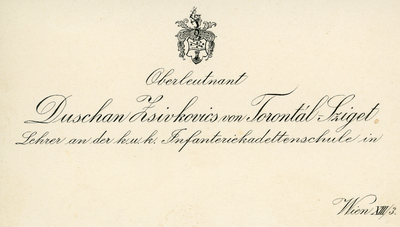 Oberleutnant
Duschan Zsivkovics von Torontál-Sziget,
Lehrer an der k.u.k. Infanteriekadettenschule in
Wien XIII/3.